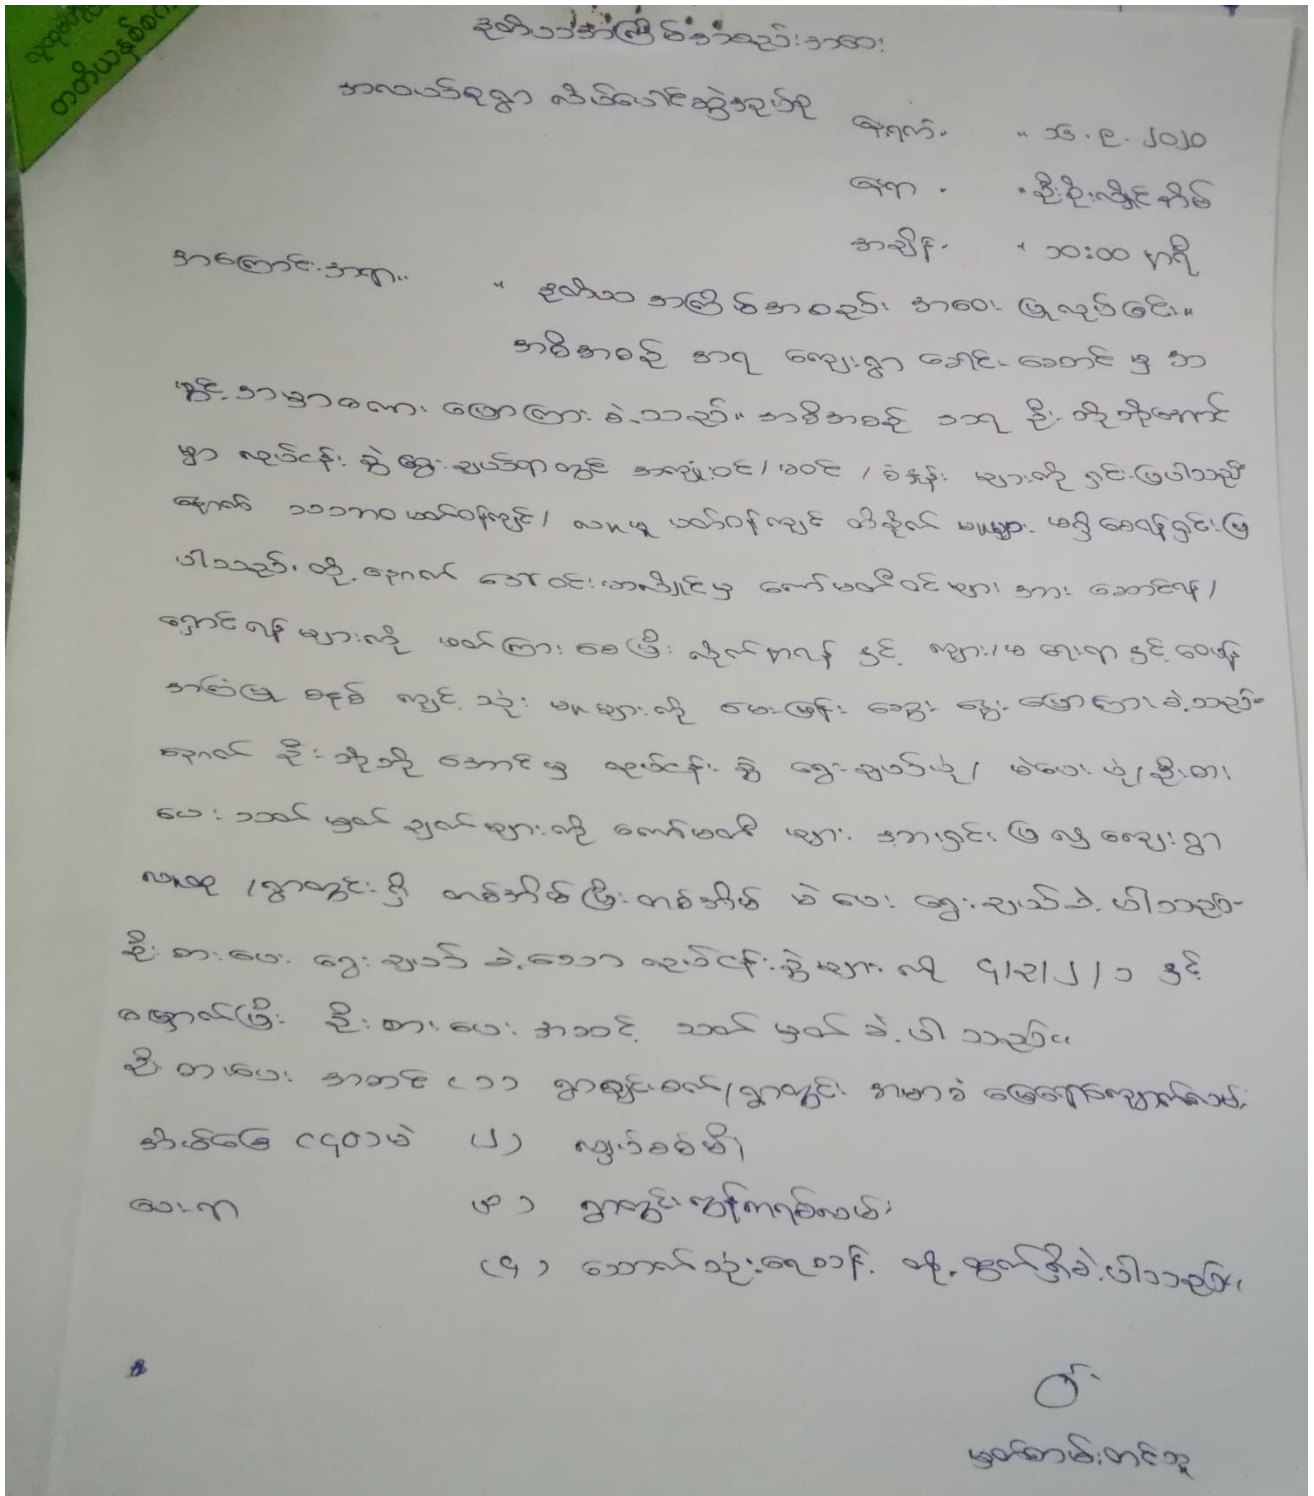 တတိယနှစ်စာ
ဒုတိယအကြိမ်အစည်းအဝေး
အလယ်စုရွာ လိပ်ပေါင်ဆွဲအုပ်စု
နေ့ရက်။ ။ ၁၆.၉.၂၀၂၀
နေရာ။ ။ ဦးစိုးလှိုင်အိမ်
အချိန်။ ။ ၁၀:၀၀ နာရီ
အကြောင်းအရာ။ ။ ဒုတိယ အကြိမ်အစည်း အဝေး ပြုလုပ်ခြင်း။
အစီအစဉ် အရ ကျေးရွာ ခေါင်းဆောင် မှ အ
ဖွင့် အမှာစကား ပြောကြား ခဲ့သည်။ အစီအစဉ် အရ ဦး ဘိုဘိုအောင်
မှာ လုပ်ငန်း ခွဲ ရွေးချယ်ရာတွင် အကျုံးဝင်/မဝင် / စံနှုန်း များကို ရှင်းပြပါသည်
နောက် သဘာဝ ပတ်ဝန်းကျင်/ လူမှု ပတ်ဝန်းကျင် ထိခိုက် မှုများ မရှိ စေရန်ရှင်းပြ
ပါသည်၊ ထို့နောက် ဒေါ်ဝင်း မှ ကော်မတီဝင်များ အား ဆောင်ရန်/
ရှောင်ရန် များကို ဖတ်ကြား စေပြီး လိုက်နာရန် နှင့် ကျား/မ ရေးရာ နှင့် ဝေဖန်
အကြံပြု စနစ် ကျင့် သုံး မှုများကို မေးမြန်း ဆွေး နွေး ပြောကြား ခဲ့သည်။
နောက် ဦးဘိုဘို အောင်မှ လုပ်ငန်း ခွဲ ရွေးချယ်ပုံ/ မဲပေး ပုံ/ဦးစား
ပေး သတ်မှတ် ချက်များကို ကော်မတီ များ အားရှင်း ပြ၍ ကျေးရွာ
လူထု /ရွာတွင်း ရှိ တစ်အိမ်ပြီး တစ်အိမ် မဲ ပေး ရွေးချယ်ခဲ့ ပါသည်။
ဦးစားပေး ရွေးချယ် ခဲ့သော လုပ်ငန်းခွဲများ ကို ၄/၃/၂/၁ နှင့်
မြှောက်ပြီး ဦးစားပေး အဆင့် သတ် မှတ် ခဲ့ပါ သည်။
ဦးစားပေး အဆင့် (၁) ရွာချင်းဆက်/ရွာတွင်း အမာခံ မြေချောကျောက်လမ်း
အိမ်ခြေ (၄၀)မဲ (၂) လျှပ်စစ်မီး
ပေးရာ (၃) ရွာတွင်း ကွန်ကရစ်လမ်း
(၄) သောက်သုံးရေစင် တို့ ထွက်ရှိခဲ့ပါသည်။
မှတ်တမ်းတင်သူ